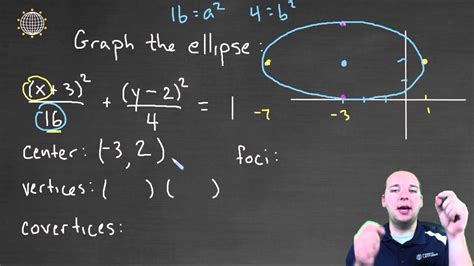 16 = a² 4 = b²
Graph the ellipse:
(x+3)²/16 + (y-2)²/4 = 1
-7 -3 1
center: (-3, 2) foci:
vertices: ( ) ( )
covertices: